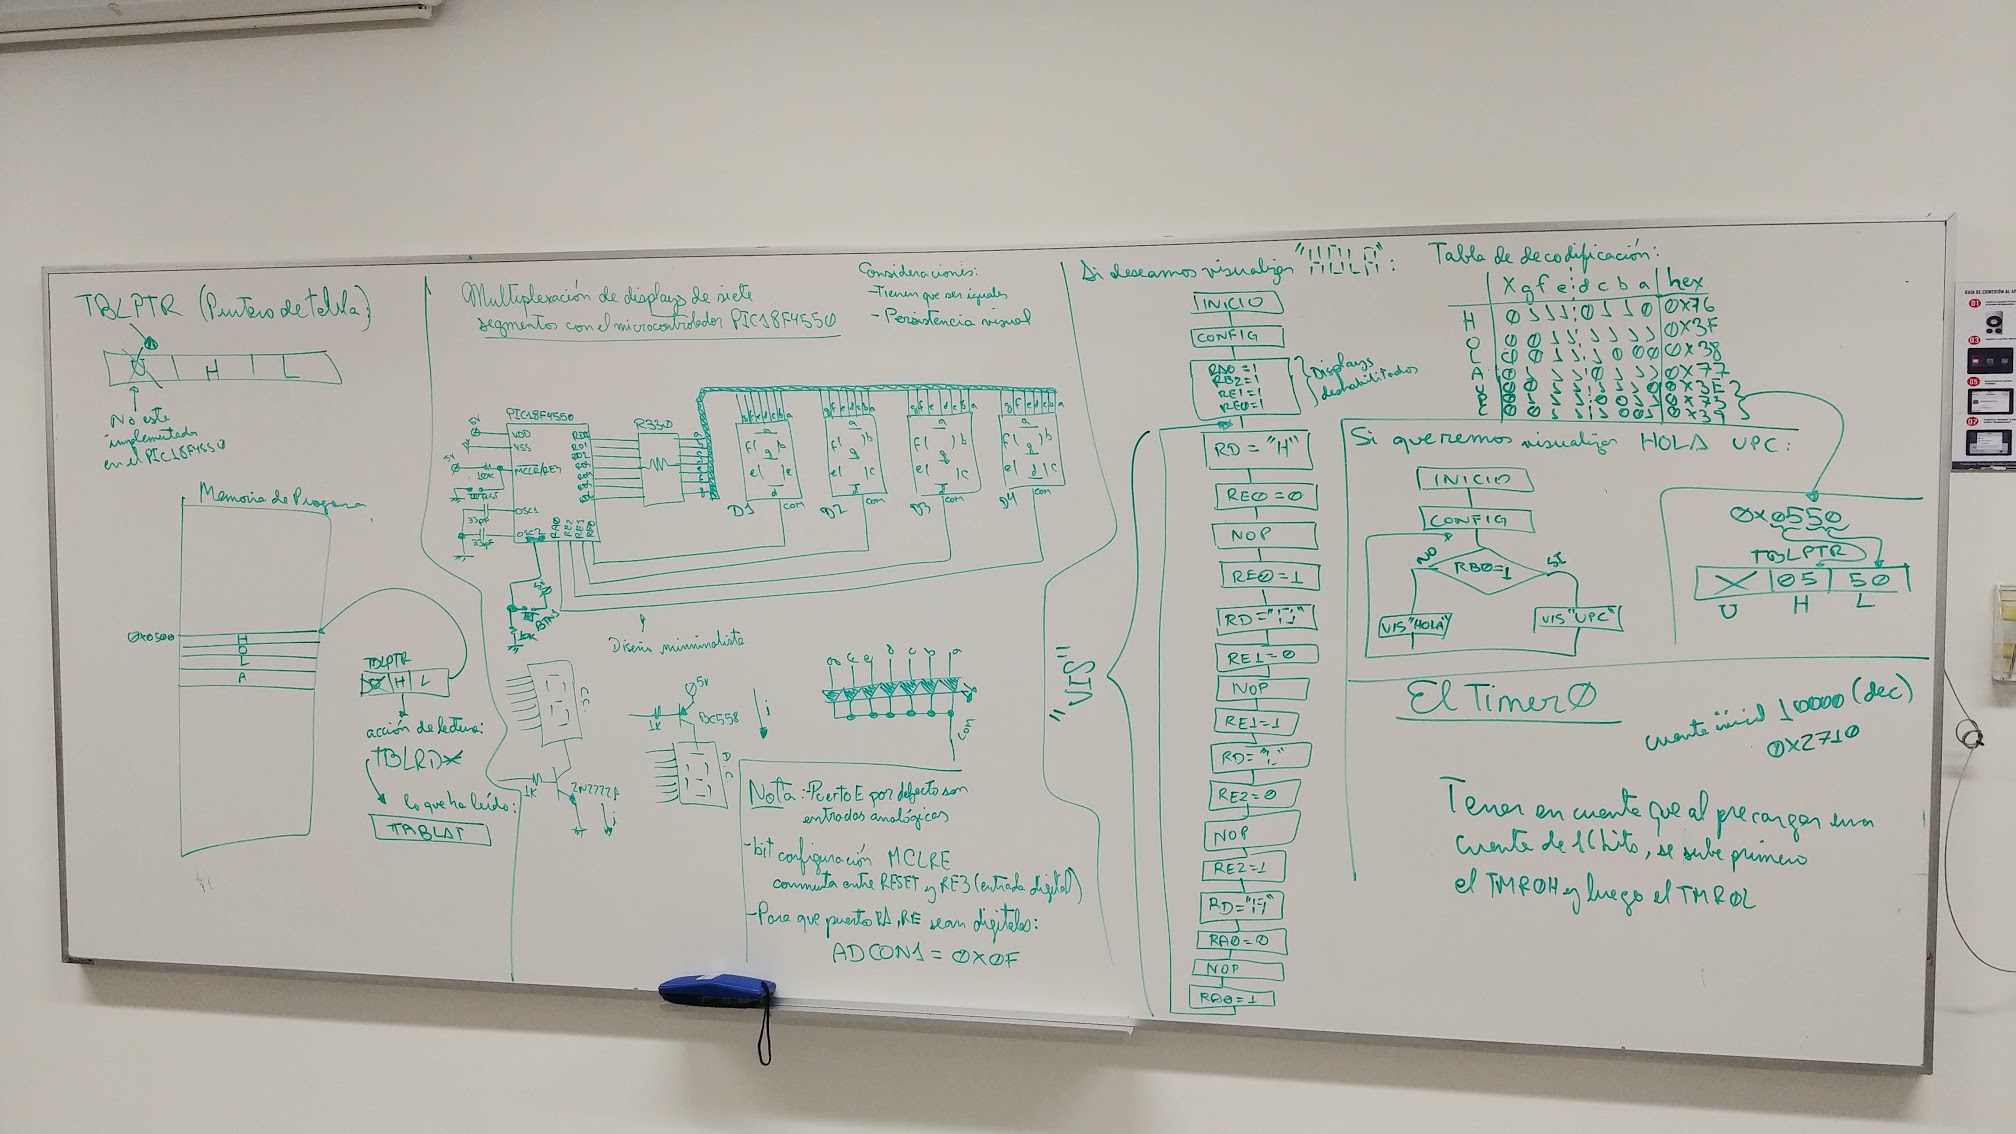 TBLPTR (Puntero de tabla)
U H L
No está
implementado
en el PIC18F4550
Memoria de Programa
0x0500
H
O
L
A
TBLPTR
U H L
acción de lectura:
TBLRD*
lo que ha leído:
TABLAT
Multiplexación de displays de siete
segmentos con el microcontrolador PIC18F4550
Consideraciones:
- Tienen que ser iguales
- Persistencia visual
PIC18F4550
5V
VDD
VSS
MCLR/RE3
10K
OSC1
OSC2
33pF
33pF
RD0
RD1
RD2
RA0
RE2
RE1
RE0
R330
g f e d c b a
g f e d c b a
g f e d c b a
g f e d c b a
D1 com
D2 com
D3 com
D4 com
5V
BTN1
10K
Diseño minimalista
CC
1K
2N2222A
i
5V
1K
BC558
i
com
Nota: - Puerto E por defecto son
entradas analógicas
- bit configuración MCLRE
conmuta entre RESET y RE3 (entrada digital)
- Para que puerto RA, RE sean digitales:
ADCON1 = 0x0F
Si deseamos visualizar "HOLA":
INICIO
CONFIG
RA0=1
RE2=1
RE1=1
RE0=1
Displays
deshabilitados
"VIS"
RD = "H"
RE0=0
NOP
RE0=1
RD="O"
RE1=0
NOP
RE1=1
RD="L"
RE2=0
NOP
RE2=1
RD="A"
RA0=0
NOP
RA0=1
Tabla de decodificación:
X g f e d c b a hex
H 0 1 1 1 0 1 1 0 0x76
O 0 0 1 1 1 1 1 1 0x3F
L 0 0 1 1 1 0 0 0 0x38
A 0 1 1 1 0 1 1 1 0x77
U 0 0 1 1 1 1 1 0 0x3E
P 0 1 1 1 0 0 1 1 0x73
C 0 0 1 1 1 0 0 1 0x39
Si queremos visualizar HOLA UPC:
INICIO
CONFIG
NO RB0=1 SI
VIS"HOLA"
VIS"UPC"
0x0550
TBLPTR
X 05 50
U H L
El Timer0
cuenta inicial 10000 (dec)
0x2710
Tener en cuenta que al precargar una
cuenta de 16bits, se sube primero
el TMR0H y luego el TMR0L